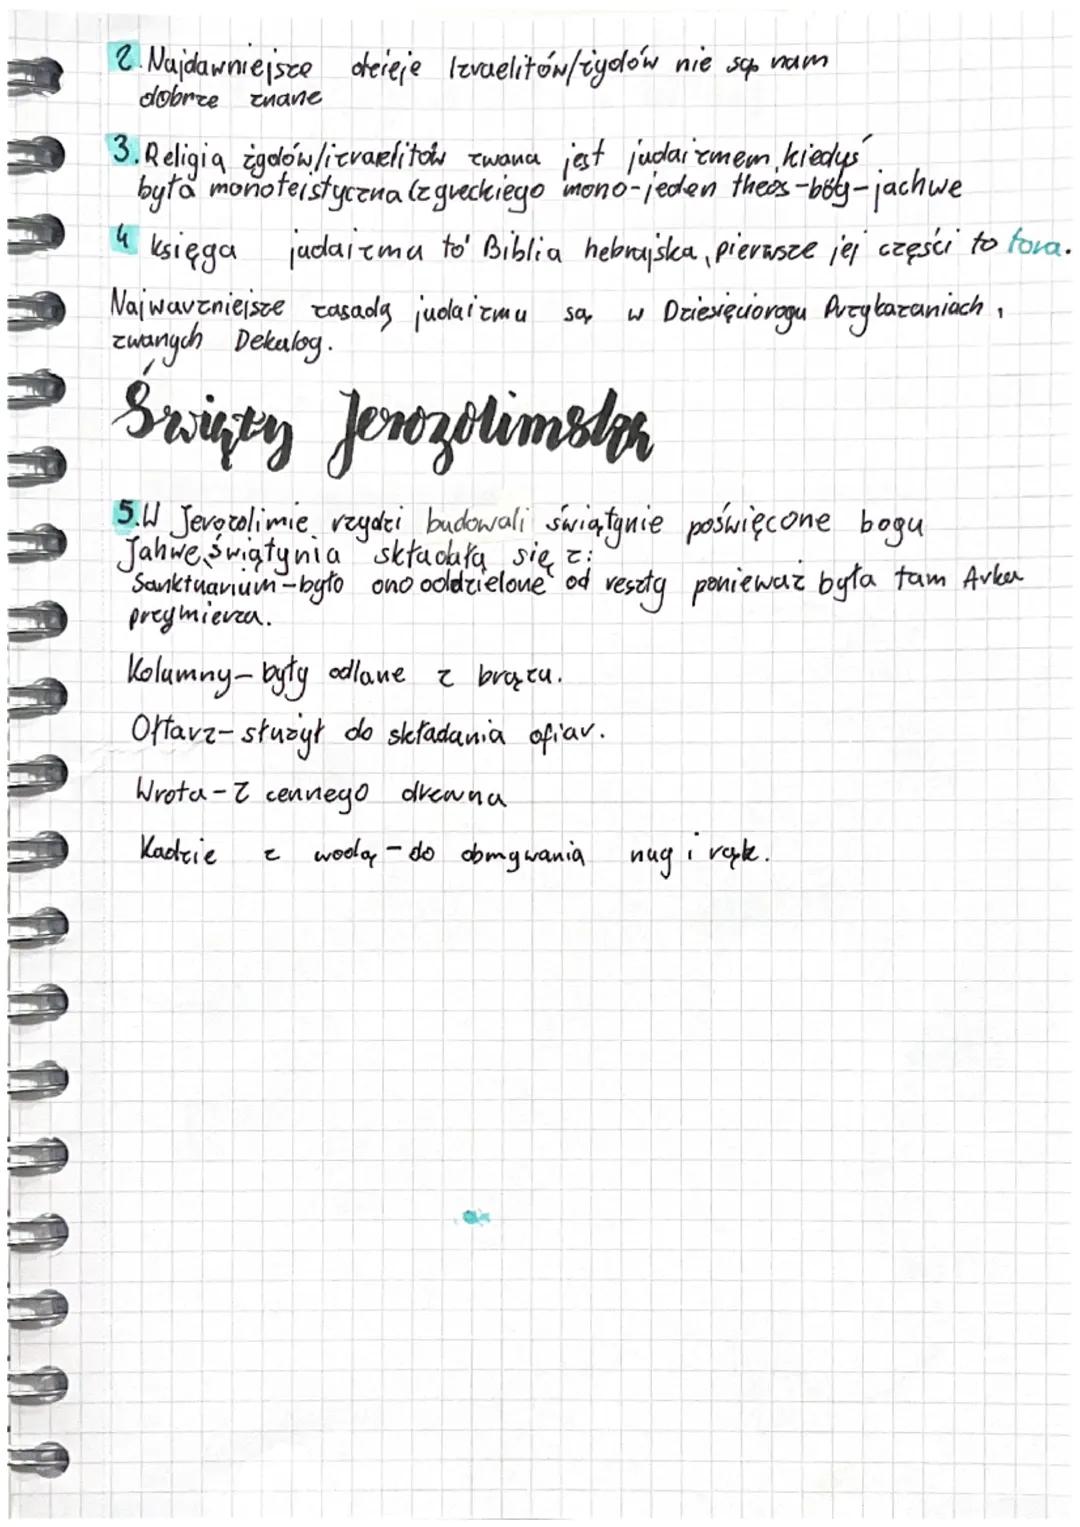 2. Najdawniejsze dzieje Izraelitów/żydów nie są nam
dobrze znane
3. Religią żydów/izraelitów zwana jest judaizmem, kiedyś
była monoteistyczna (z greckiego mono-jeden theos-bóg-jachwe
4 księga judaizmu to Biblia hebrajska, pierwsze jej części to tora.
Najwarzniejsze zasady judaizmu są w Dziesięciorogu Przykazaniach,
zwanych Dekalog.
Święty Jerozolimska
5. W Jerozolimie rzydzi budowali świątynie poświęcone bogu
Jahwe, świątynia składała się z:
Sanktuarium-było ono oddzielone od reszty ponieważ była tam Arka
przymierza.
Kolumny-były odlane z brązu.
Ołtarz-służył do składania ofiar.
Wrota-z cennego drewna
Kadzie z wodą-do obmywania nug i rąk.